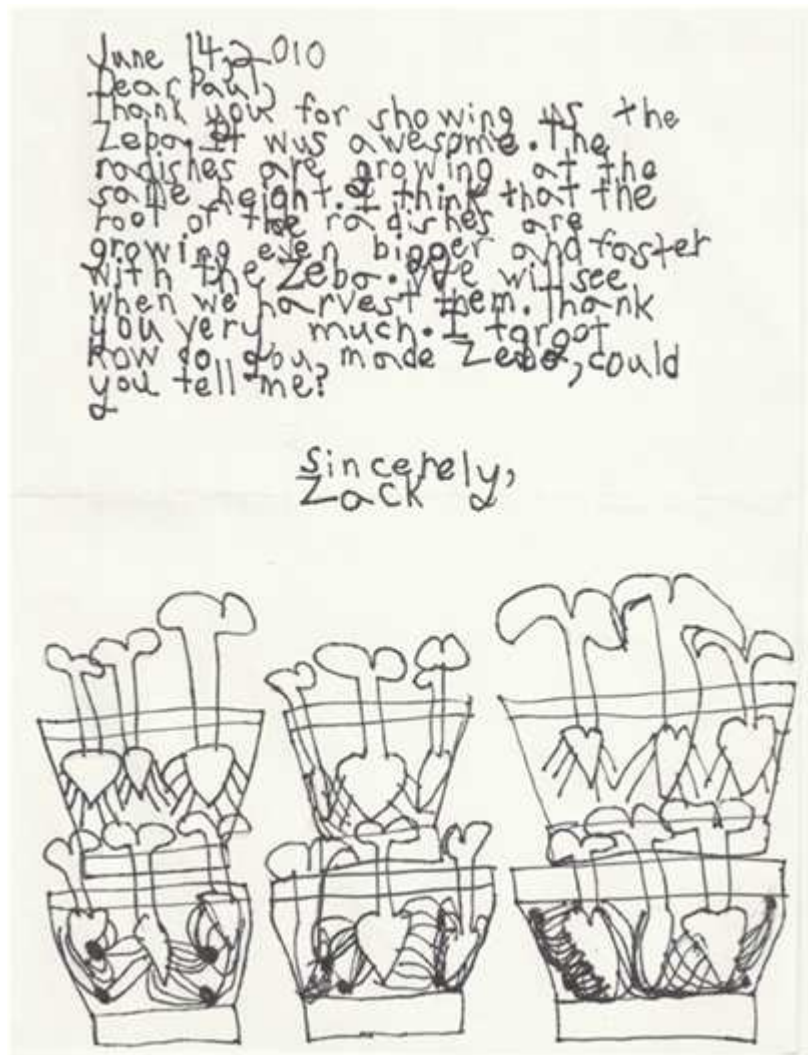 June 14,2010
Dear Paul,
Thank you for showing us the
Zeba.It wus awesome.The
radishes are growing at the
same height.I think that the
root of the radishes are
growing even bigger and faster
with the Zeba.We will see
when we harvest them.Thank
you very much.I forgot
how do you made Zeba,could
you tell me?
Sincerely,
Zack